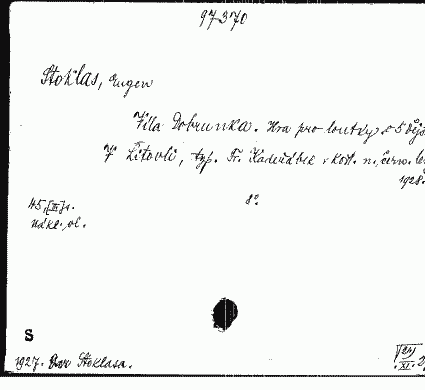 97370
Stoklas, Eugen
Víla Dobrunka. Hra pro loutky o 5 děj
V Litovli, typ. Fr. Kadeřábek v Kost. n. čern. le
1928.
45, [III] s. 8°
nákl. vl.
S
1927. Dar Stoklasa.
XI. 2